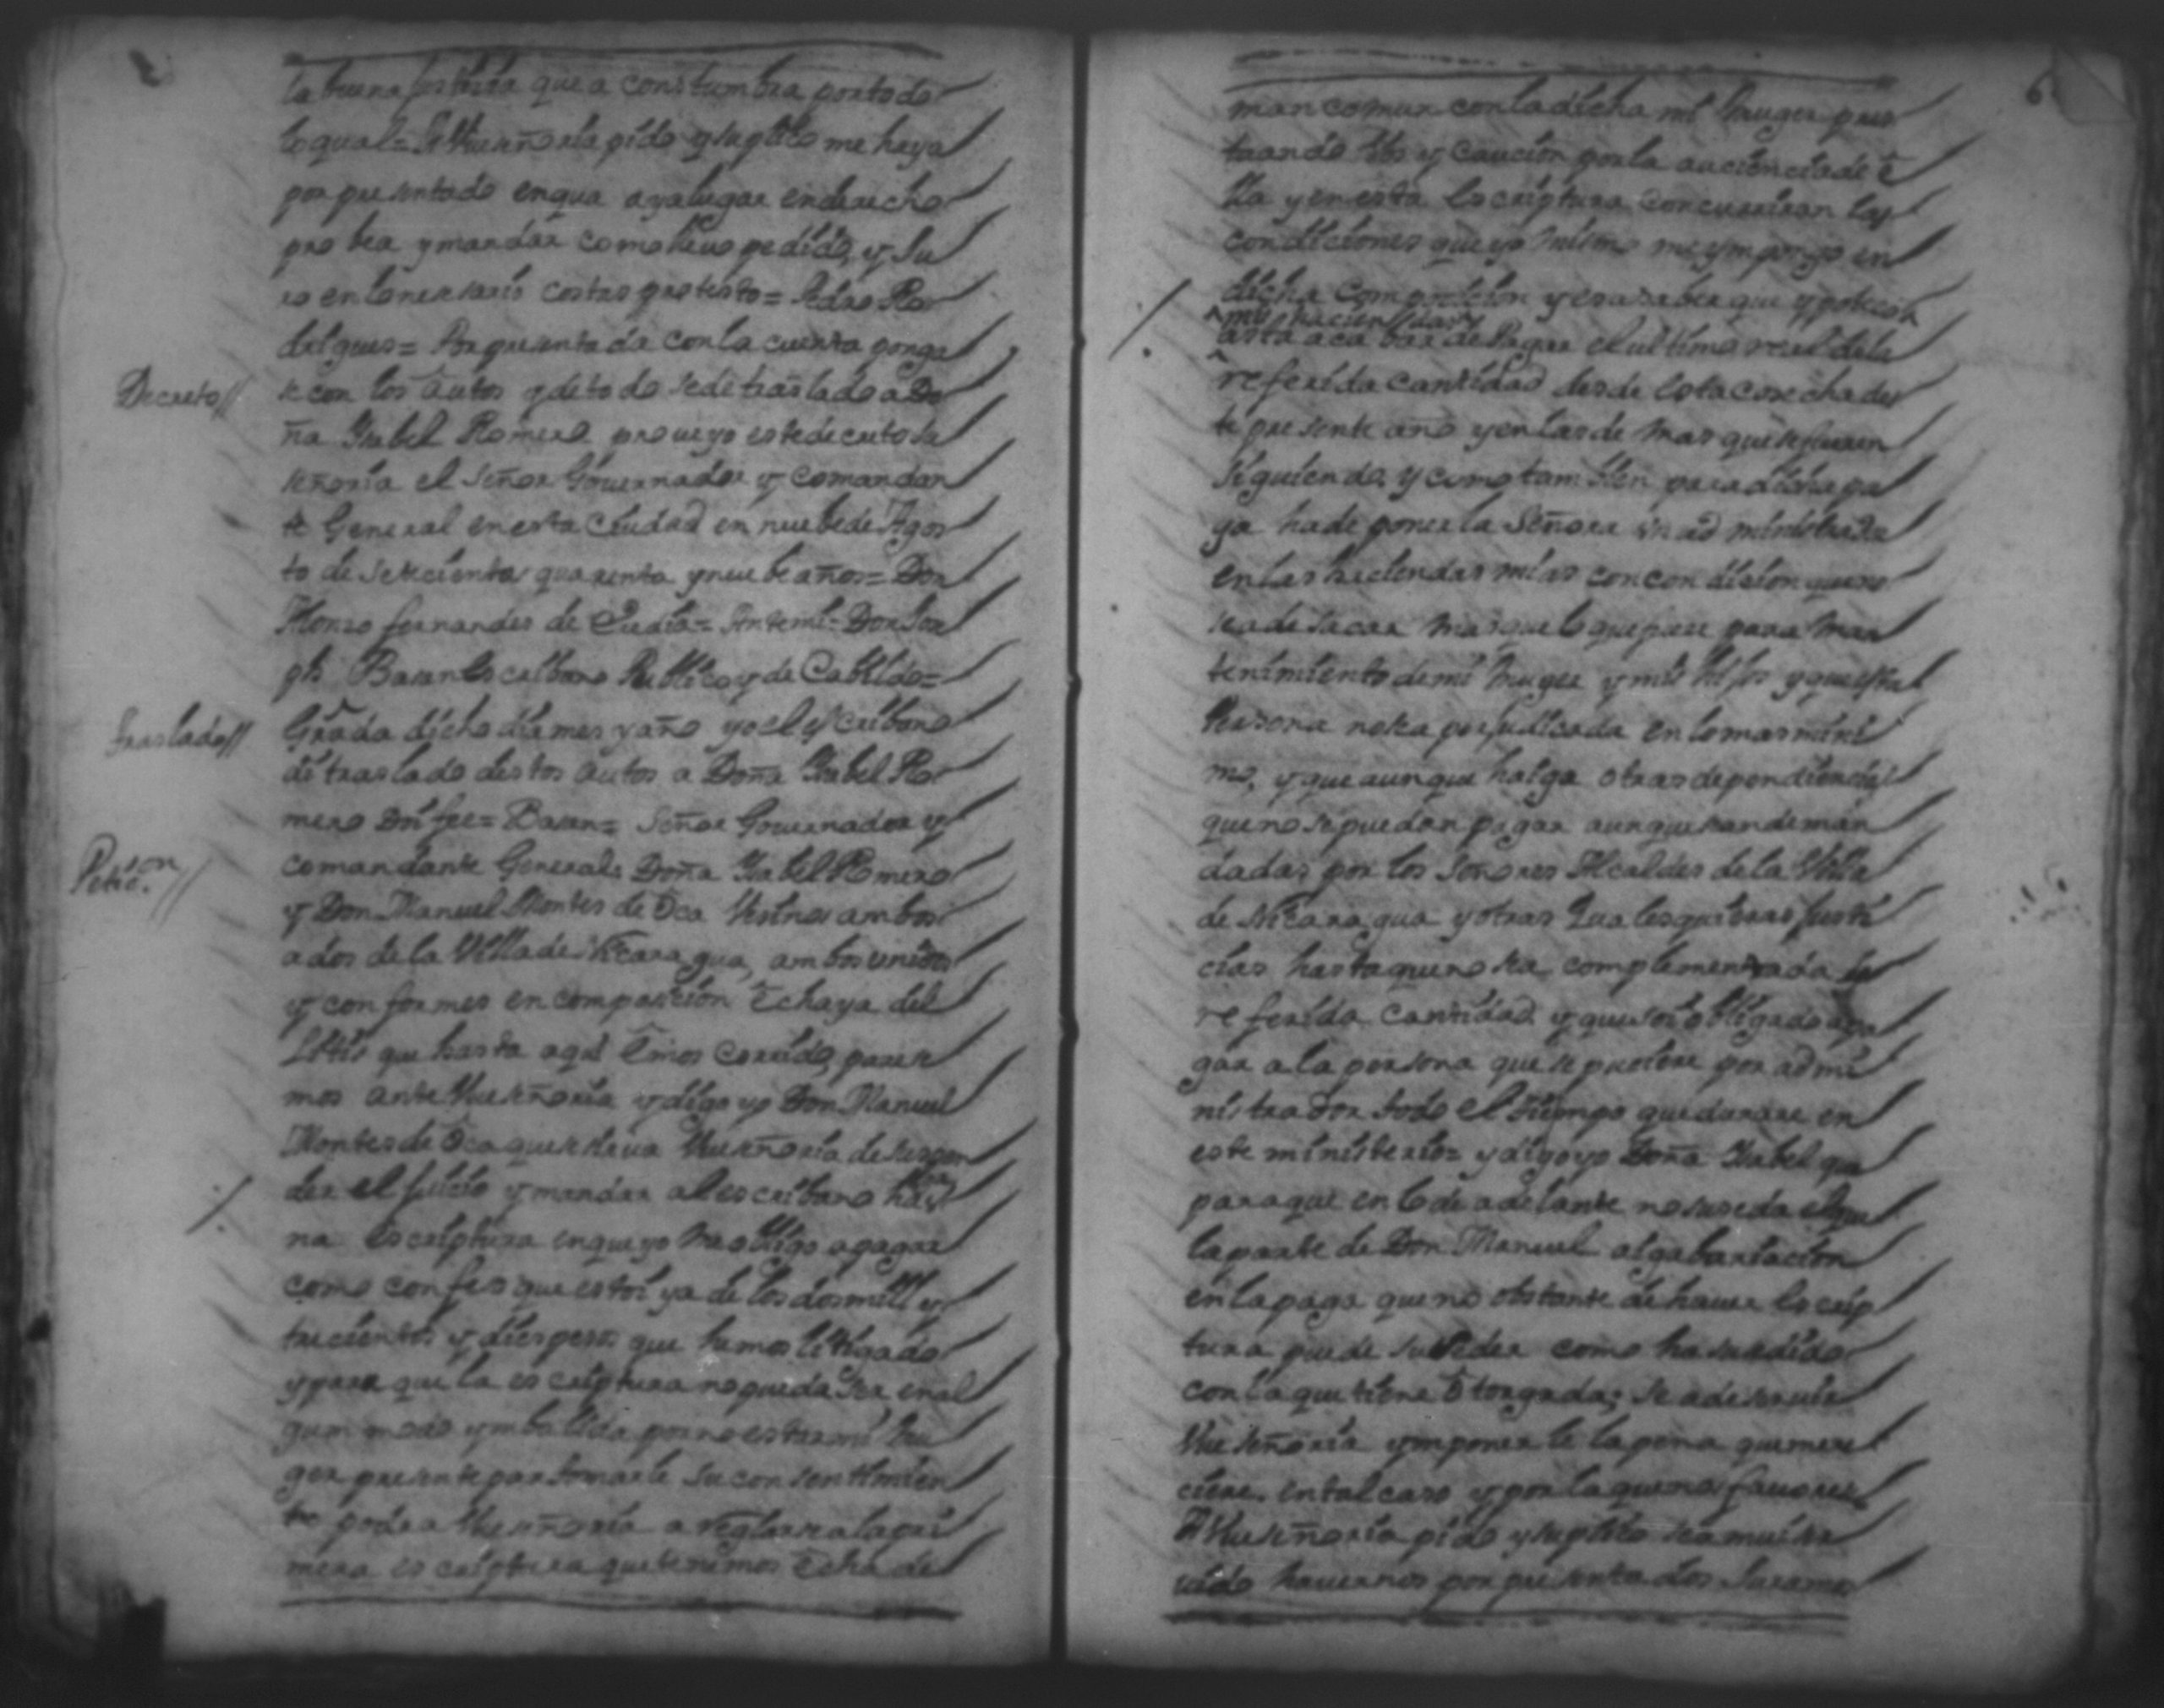 la buena justicia que a constumbra por todo
lo qual = A Vueseñoria pido y suplico me haya
por presentado en qua aya lugar en derecho
probea y mandar como llevo pedido, y Ju
ro en lo nersario costas protesto = Pedro Ro
drigues = Por presentada con la cuenta ponga
Decreto//
se con los autos y de todo se de traslado a Do
ña Ysabel Romero proueyo este decreto su
señoria el Señor Gouernador y Comandan
te General en esta Ciudad en nuebe de Agos
to de setecientos quarenta y nuebe años = Don
Alonso fernandes de Eredia = Ante mi = Don Jos
ph Basan Escribano Publico y de Cabildo =
traslado//
Granada dicho dia mes y año yo el escribano
di traslado destos autos a Doña Ysabel Ro
mero Doi fee = Basan = Señor Gouernador y
Petic.on//
comandante General = Doña Ysabel Romero
y Don Manuel Montes de Oca Vesinos ambos
ados de la Villa de Nicaragua, ambos unidos
y conformes en composision Echa ya del
Litis que hasta aqui Emos Corrido, parese
mos ante Vueseñoria y digo yo Don Manuel
Montes de Oca que se sirua Vueseñoria de suspen
der el juicio y mandar al escribano haga
na escriptura en que yo me obligo a pagar
como confeso que estoi ya de los dos mill y
trecientos y dies pesos que hemos litigado
y para que la escriptura no pueda ser en al
gun modo ymbalida por no estar mi Mu
ger presente par tomarle su consentimien
to podra Vueseñoria a reglarse a la pri
mera escriptura que tenemos Echa de
6
man comun con la dicha mi Muger pres
tando Vos y Caucion por la aucencia de e
lla y en esta Escriptura concurriran las
condiciones que yo mismo me ympongo en
dicha Composicion y es a saber que ypoteco
mis haciendas
asta acabar de Pagar el ultimo real de la
referida cantidad desde esta cosecha des
te presente año y en las de mas que se fueren
siguiendo, y como tambien para dicha pa
ga ha de poner la Señora un administrador
en las haciendas mias con condision que no
sea de sacar mas que lo que pase para man
tenimiento de mi Muger y mis hijos y que esta
Persona no sea perjudicada en lo mas mini
mo, y que aunque halga otras dependiencias
que no se puedan pagar aunque sean deman
dadas por los Señores Alcaldes de la Villa
de Nicaragua y otras Qualesquieras justi
cias hasta que no sea complementada la
referida Cantidad y que soi obligado a pa
gar a la persona que se pusiere por admi
nistrador todo el tiempo que durare en
este ministerio = y digo yo Doña Ysabel que
para que en lo de adelante no suseda el que
la parte de Don Manuel alga bariacion
en la paga que no obstante de hauer Escrip
tura puede suseder como ha susedido
con la que tiene otorgada; se a de seruir
Vueseñoria ymponerle la pena que mere
ciere en tal caso y por la que nos fauorese
A Vueseñoria pido y suplico sea mui ser
uido hauernos por presentados Juramos